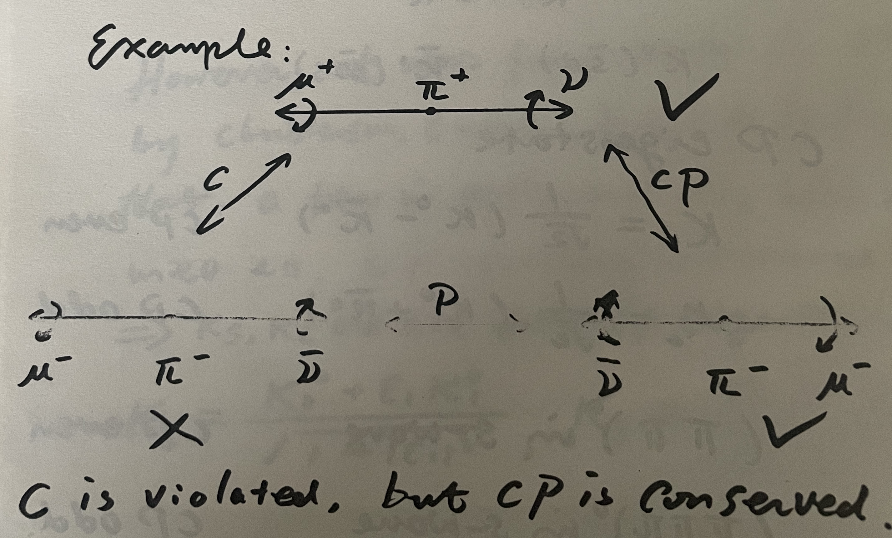 Example:
μ⁺ π⁺ ν ✓
C CP
P
μ⁻ π⁻ ν̄ ν̄ π⁻ μ⁻
✗ ✓
C is violated, but CP is conserved.